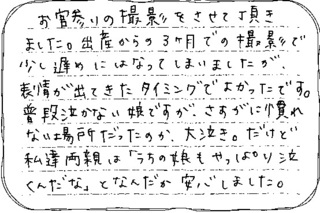 お宮参りの撮影をさせて頂き
ました。出産から3ヶ月での撮影で
少し遅めにはなってしまいましたが、
表情が出てきたタイミングでよかったです。
普段泣かない娘ですが、さすがに慣れ
ない場所だったのか、大泣き。だけど
私達両親は「うちの娘もやっぱり泣
くんだな」となんだか安心しました。